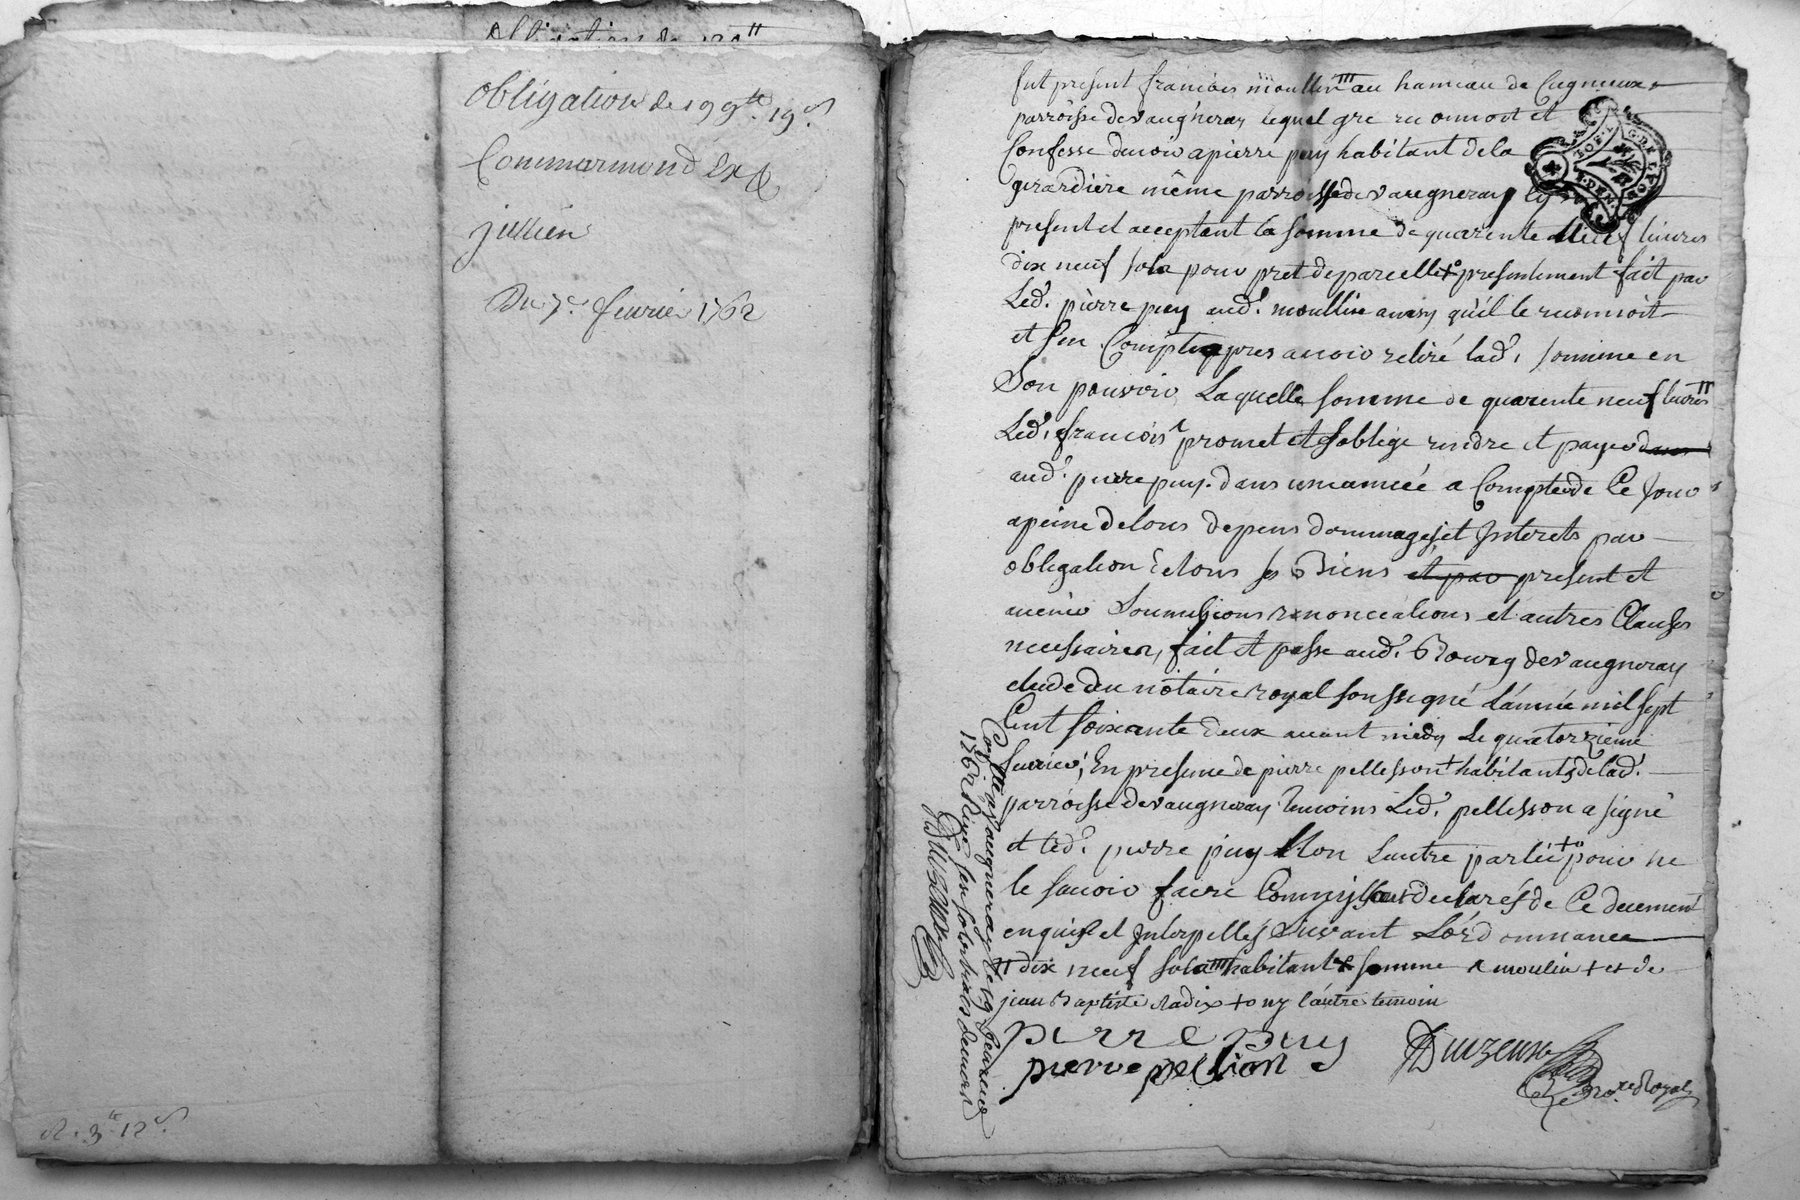 obligation de 199tt. 19s.
Commarmond Ex
jullien
Du 7e. feurier 1762
R. 3tt 12s.
fut present francois moullin au hameau de Cugnieux
parroisse de vaugneray lequel gre reconnoit et
Confesse deuoir a pierre puy habitant de la
girardiere même parroisse de vaugneray cy
present et acceptant la somme de quarente neuf liures
dix neuf sols pour pret de pareille presentement fait par
Led. pierre puy aud. moullin ainsy qu'il le reconnoit
et s'en Compte apres auoir retiré lad. somme en
Son pouvoir Laquelle somme de quarente neuf liures
Led. francois promet et s'oblige rendre et payer
aud. pierre puy dans une année a Compter de Ce jour
a peine de tous depens dommages et Interets par
obligation de tous ses Biens et par present et
auenir Soumissions renonciations et autres Clauses
necessaires, fait et passe aud. Bourg de vaugneray
etude du notaire royal soussigné l'année mil sept
Cent soixante deux auant midy Le quatorzieme
feurier, En presence de pierre pellesson + habitants de lad.
parroisse de vaugneray temoins Led. pellesson a signé
et led. pierre puy Non Lautre partie pour ne
le sauoir faire Comme ils ont declarés de Ce deuement
enquis et Interpellés Suivant L'ordonnance
dix neuf sols habitant somme moulin + et de
jean Baptiste Radix + o ny l'autre temoin
pierre puy
pierre pellson
No.re Royal
Con.lle a vaugneray le 19 feurier
1762 Reçu six sols trois deniers